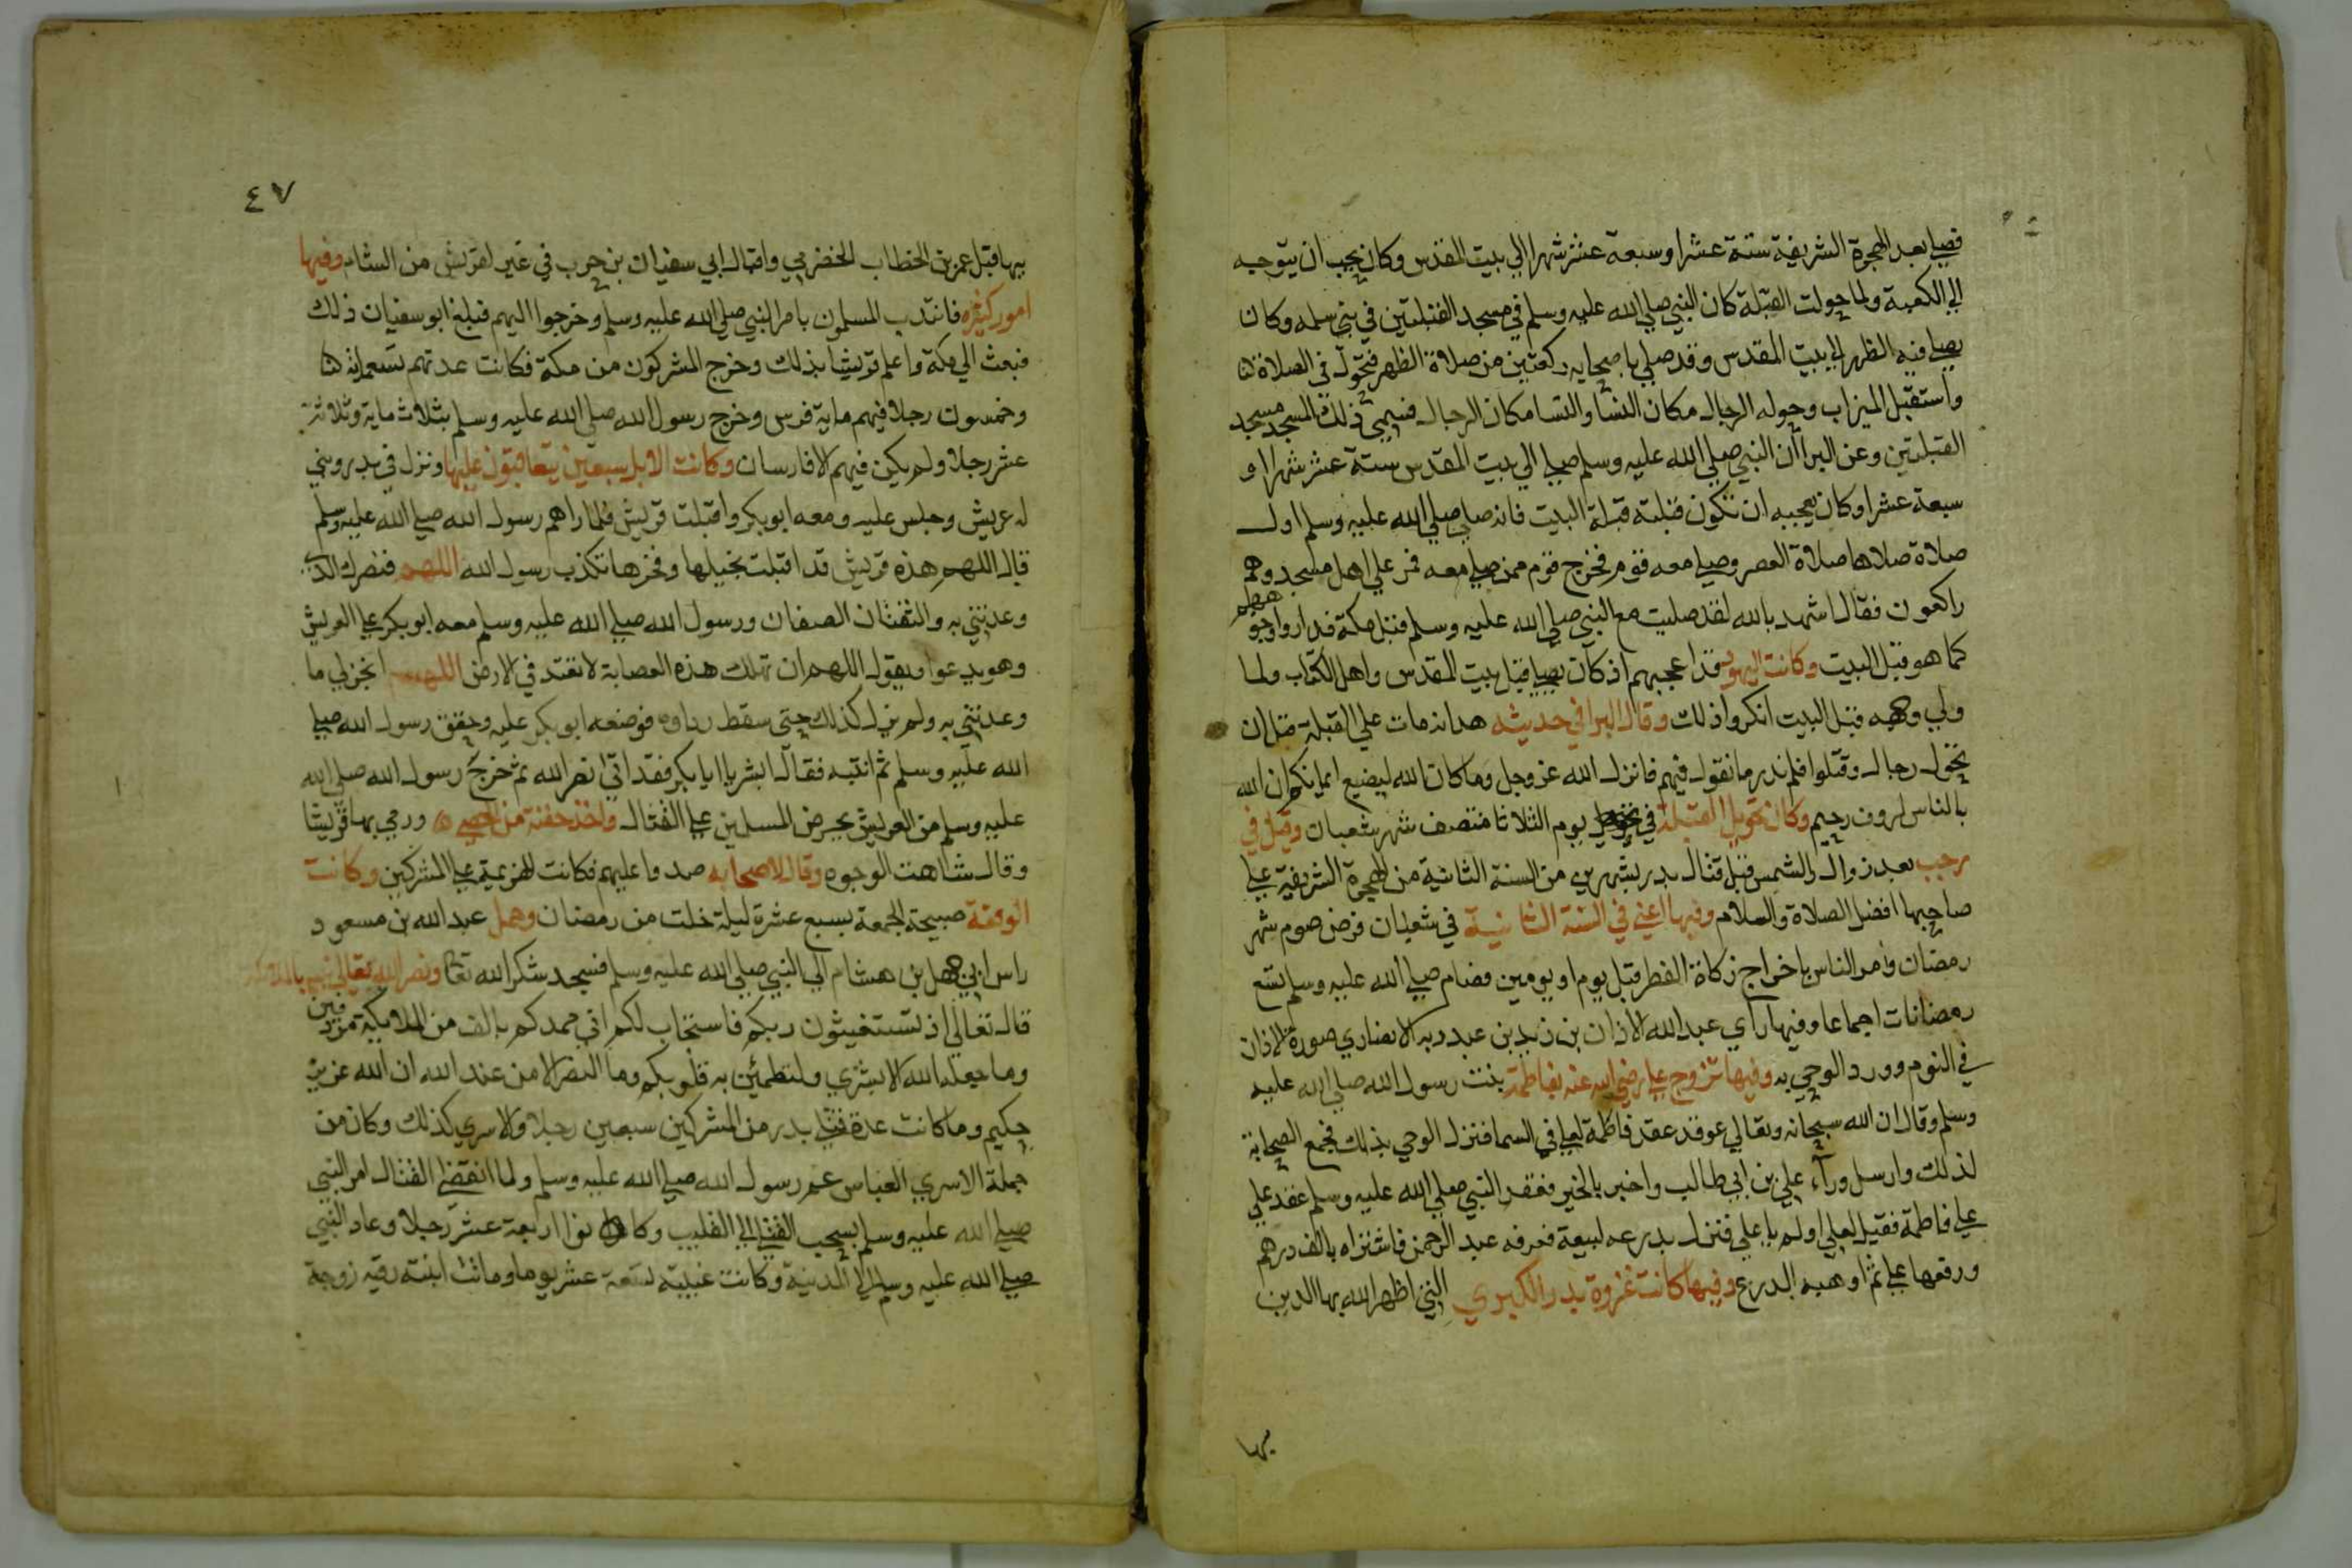 فصلي بعد الهجرة الشريفة ستة عشرا وسبعة عشر شهرا الي بيت المقدس وكان يحب ان يتوجه
الي الكعبة ولما حولت القبلة كان النبي صلي الله عليه وسلم في مسجد القبلتين في بني سلمه وكان
يصلي فيه الظهر الي بيت المقدس وقد صلي باصحابه ركعتين من صلاة الظهر فتحول في الصلاة
واستقبل الميزاب وحوله الرجال مكان النسا والنسا مكان الرجال فسمي ذلك المسجد مسجد
القبلتين وعن البرا ان النبي صلي الله عليه وسلم صلي الي بيت المقدس ستة عشر شهرا او
سبعة عشرا وكان يعجبه ان تكون قبلته قبلة البيت فانه صلي صلي الله عليه وسلم اول
صلاة صلاها صلاة العصر وصلي معه قوم فخرج قوم ممن صلي معه فمر علي اهل مسجد وهم
راكعون فقال اشهد بالله لقد صليت مع النبي صلي الله عليه وسلم قبل مكة فداروا
كما هو قبل البيت وكانت اليهود قد اعجبهم اذ كان يصلي قبل بيت المقدس واهل الكتاب ولما
ولي وجهه قبل البيت انكروا ذلك وقال البرا في حديثه هدا انه مات علي القبلة قبل ان
تحول رجال وقتلوا فلم ندر ما نقول فيهم فانزل الله عز وجل وما كان الله ليضيع ايمانكم ان الله
بالناس لروف رحيم وكان تحويل القبلة في يوم الثلاثا منتصف شهر شعبان وقيل في
رجب بعد زوال الشمس قبل قتال بدر بشهرين من السنة الثانية من الهجرة الشريفة علي
صاحبها افضل الصلاة والسلام وفيها اعني في السنة الثانية في شعبان فرض صوم شهر
رمضان وامر الناس باخراج زكاة الفطر قبل يوم او يومين فصام صلي الله عليه وسلم تسع
رمضانات اجماعا وفيها راي عبد الله الاذان بن زيد بن عبد ربه الانصاري صورة الاذان
في النوم وورد الوحي به وفيها تزوج علي رضي الله عنه بفاطمة بنت رسول الله صلي الله عليه
وسلم وقال ان الله سبحانه وتعالي قد عقد فاطمة لعلي في السما فنزل الوحي بذلك فجمع الصحابة
لذلك وارسل ورآء علي بن ابي طالب واخبر بالخير فعقد النبي صلي الله عليه وسلم عقد علي
علي فاطمة فقيل لعلي اولم يا علي فنزل بدرعه لبيعة فعرفه عبد الرحمن فاشتراه بالف درهم
ودفعها علي ثم اوهبه الدرع وفيها كانت غزوة بدر الكبري التي اظهر الله بها الدين
بها
٤٧
بها قبل عمر بن الخطاب الحضرمي واقبال ابي سفيان بن حرب في عير لقريش من الشام وفيها
امور كثيره فانتدب المسلمون بامر النبي صلي الله عليه وسلم وخرجوا اليهم فبلغ ابو سفيان ذلك
فبعث الي مكة واعلم قريشا بذلك وخرج المشركون من مكة فكانت عدتهم تسعماية
وخمسون رجلا فيهم ماية فرس وخرج رسول الله صلي الله عليه وسلم بثلاث ماية وثلاثة
عشر رجلا ولم يكن فيهم الا فارسان وكانت الابل سبعين يتعاقبون عليها ونزل في بدر وبني
له عريش وجلس عليه ومعه ابو بكر واقبلت قريش فلما راهم رسول الله صلي الله عليه وسلم
قال اللهم هذه قريش قد اقبلت بخيلها وفخرها تكذب رسول الله اللهم فنصرك الذي
وعدتني به والتقتان الصفان ورسول الله صلي الله عليه وسلم معه ابو بكر علي العريش
وهو يدعوا ويقول اللهم ان تهلك هذه العصابة لا تعبد في الارض اللهم انجز لي ما
وعدتني به ولم يزل كذلك حتي سقط رداوه فوضعه ابو بكر عليه وخفق رسول الله صلي
الله عليه وسلم ثم انتبه فقال ابشر يا ابا بكر فقد اتي نصر الله ثم خرج رسول الله صلي الله
عليه وسلم من العريش يحرض المسلمين علي القتال واخذ حفنة من الحصي ورمي بها قريشا
وقال شاهت الوجوه وقال لاصحابه صدوا عليهم فكانت الهزيمة علي المشركين وكانت
الوقعة صبيحة الجمعة بسبع عشرة ليلة خلت من رمضان وحمل عبد الله بن مسعود
راس ابي جهل بن هشام الي النبي صلي الله عليه وسلم فسجد شكر الله تعا ونصر الله تعالي نبيه بالملائكة
قال تعالي اذ تستغيثون ربكم فاستجاب لكم اني ممدكم بالف من الملايكة مردفين
وما جعله الله الا بشري ولتطمئن به قلوبكم وما النصر الا من عند الله ان الله عزيز
حكيم وما كانت عدة قتلي بدر من المشركين سبعين رجلا والاسري كذلك وكان من
جملة الاسري العباس عم رسول الله صلي الله عليه وسلم ولما انقضي القتال امر النبي
صلي الله عليه وسلم بسحب القتلي الي القليب وكانوا اربعة عشر رجلا وعاد النبي
صلي الله عليه وسلم الي المدينة وكانت غيبته تسعة عشر يوما وماتت ابنته رقيه زوجة